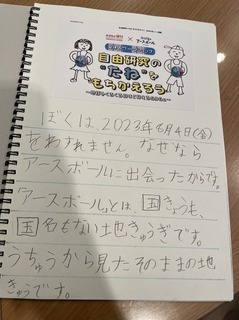 自由研究の
“たね”を
もちかえろう
ぼくは、2023年8月4日(金)
をわすれません。なぜなら
アースボールに出会ったからです。
「アースボール」とは、国きょうも、
国名もない地きゅうぎです。
うちゅうから見たそのままの地
きゅうです。